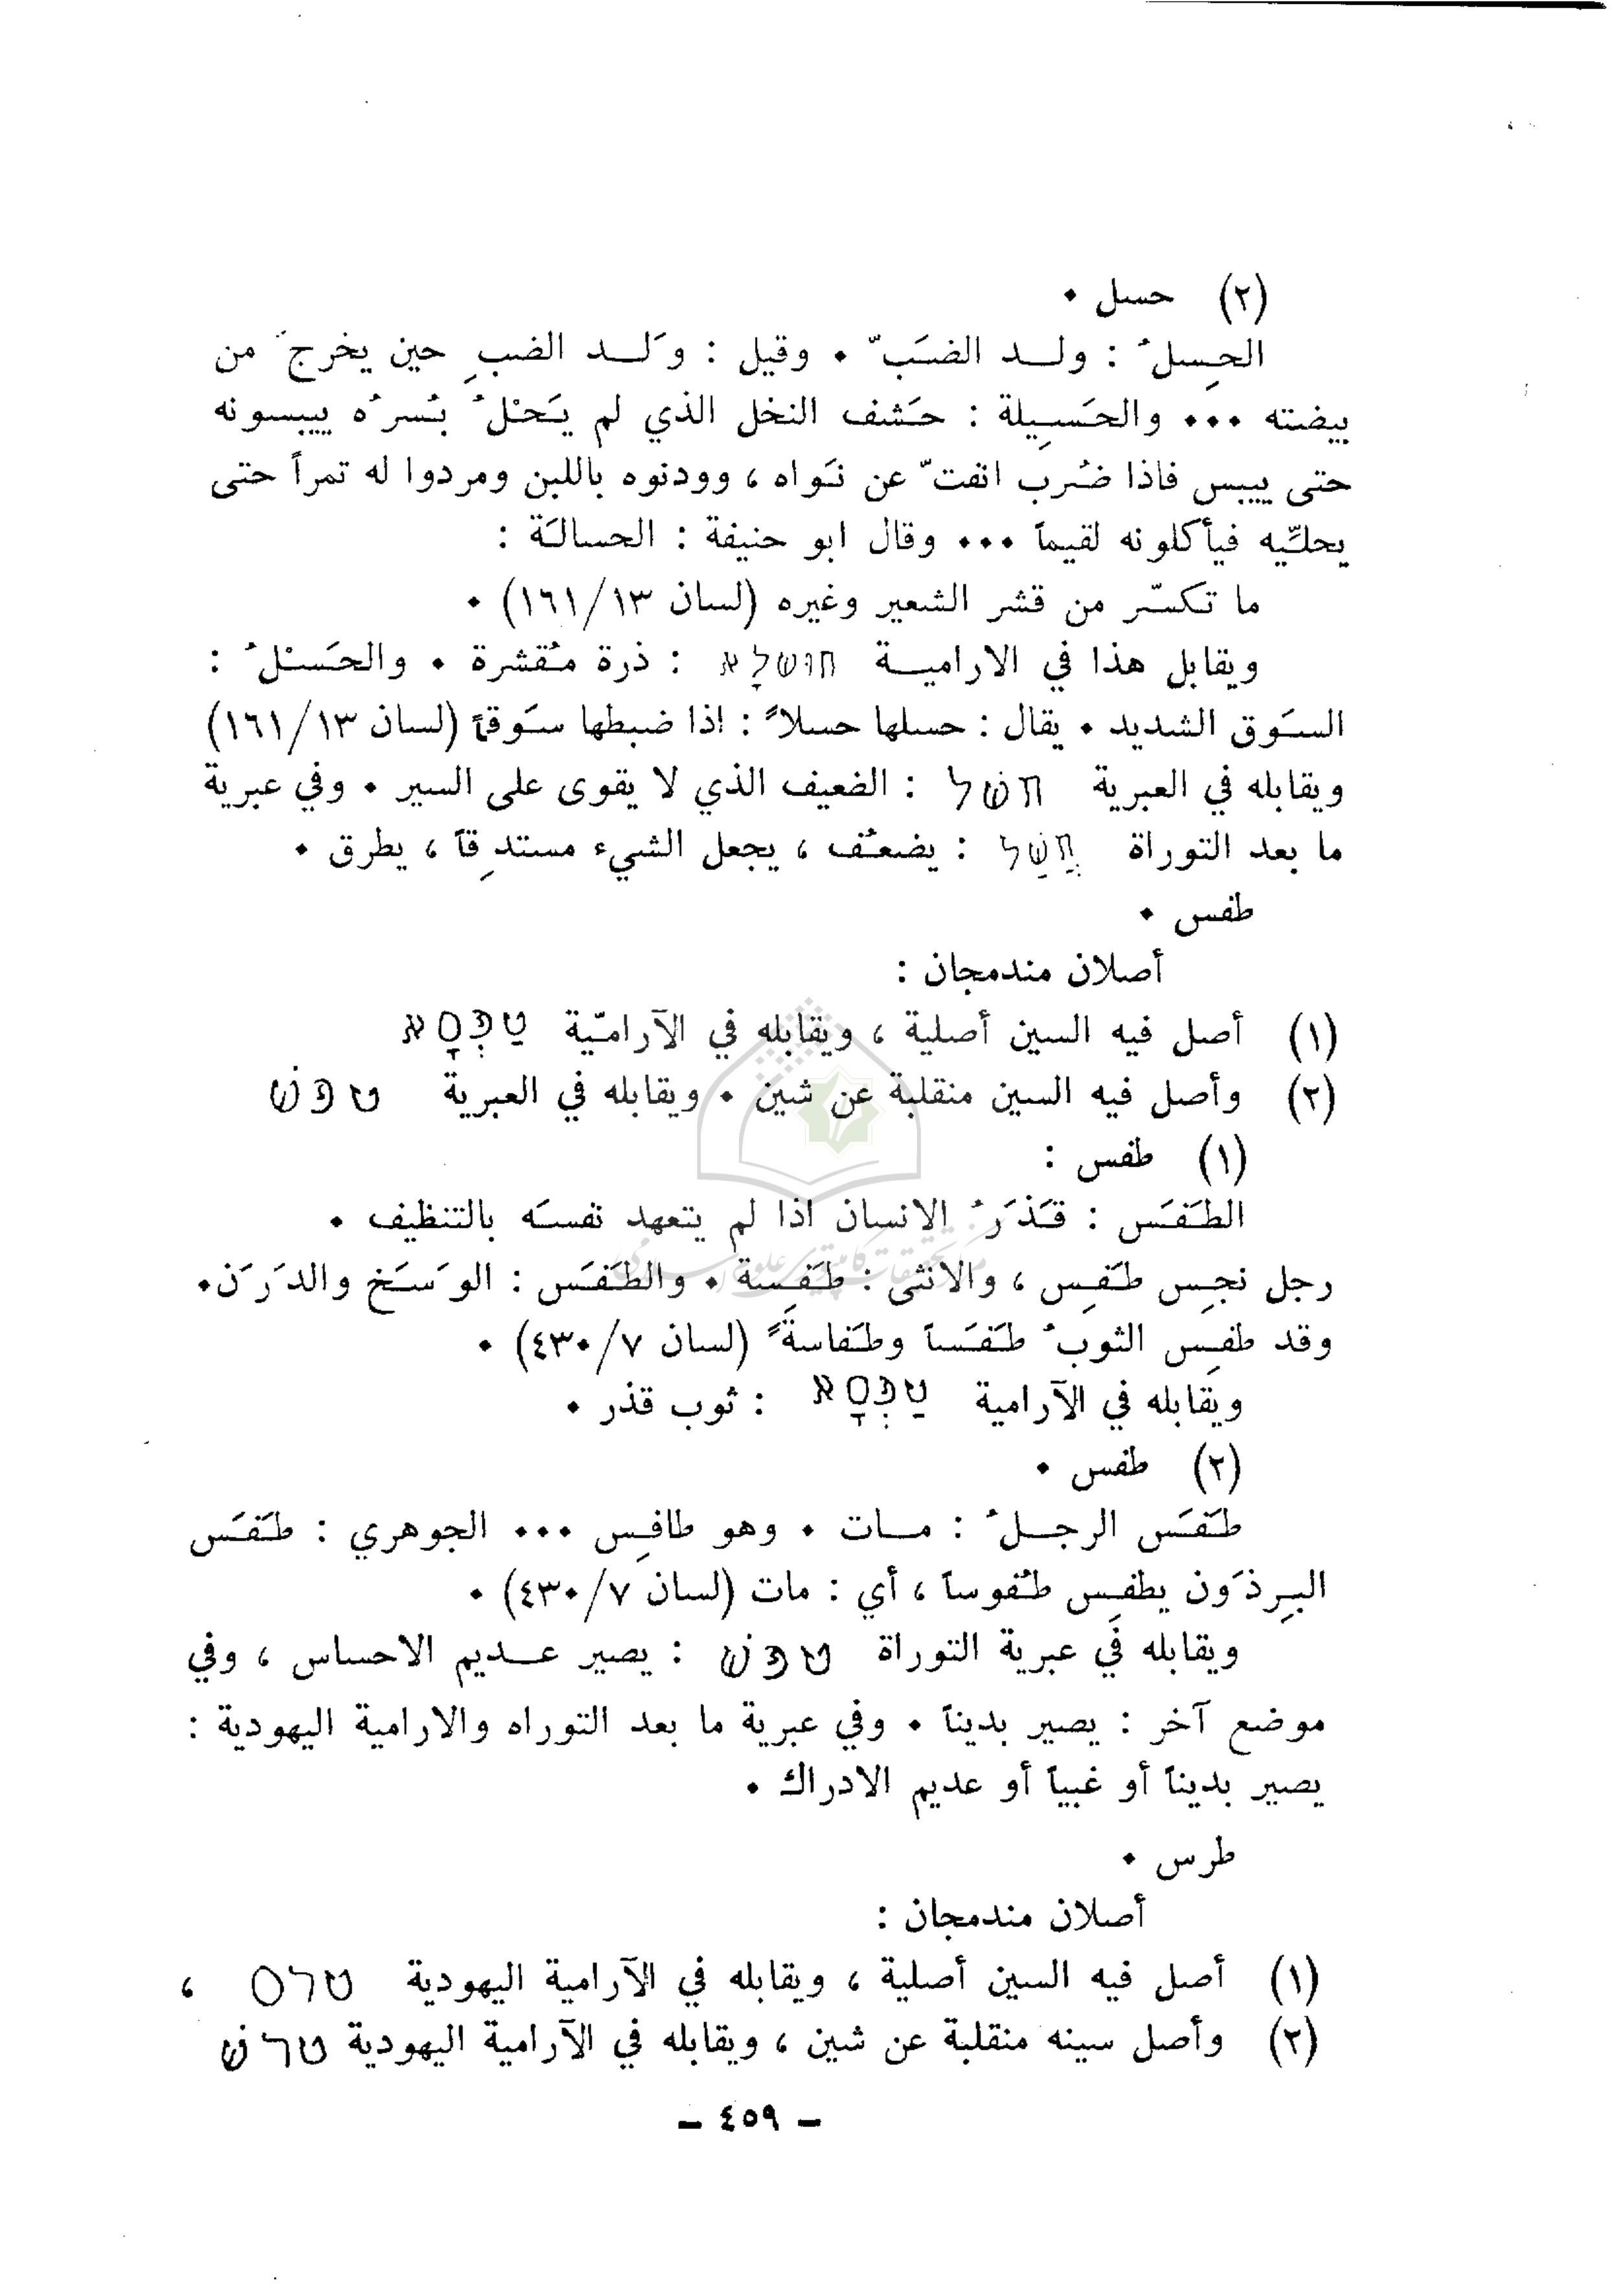 (٢) حسل ٠
الحِسلُ : ولـــد الضَبّ ٠ وقيل : وَلـــد الضبِ حين يخرج من
بيضته ٠٠٠ والحَسِيلة : حَشف النخل الذي لم يَحْلُ بُسرُه ييبسونه
حتى ييبس فاذا ضُرب انفتّ عن نَواه ، وودنوه باللبن ومردوا له تمراً حتى
يحلّيه فيأكلونه لقيماً ٠٠٠ وقال ابو حنيفة : الحسالَة :
ما تكسّر من قشر الشعير وغيره (لسان ١٦١/١٣) ٠
ويقابل هذا في الاراميــة חושלא : ذرة مُقشرة ٠ والحَسْلُ :
السَوق الشديد ٠ يقال : حسلها حسلاً : اذا ضبطها سَوقاً (لسان ١٦١/١٣)
ويقابله في العبرية חשל : الضعيف الذي لا يقوى على السير ٠ وفي عبرية
ما بعد التوراة חשל : يضعُف ، يجعل الشيء مستدِقاً ، يطرق ٠
طفس ٠
أصلان مندمجان :
(١) أصل فيه السين أصلية ، ويقابله في الآراميّة טַפְסָא
(٢) وأصل فيه السين منقلبة عن شين ٠ ويقابله في العبرية טפשׁ
(١) طفس :
الطَفَس : قَذَرُ الانسان اذا لم يتعهد نفسَه بالتنظيف ٠
رجل نجِس طَفِس ، والانثى : طَفِسة ٠ والطَفَس : الوَسَخ والدَرَن٠
وقد طفِس الثوبُ طَفَساً وطَفاسةً (لسان ٤٣٠/٧) ٠
ويقابله في الآرامية טַפְסָא : ثوب قذر ٠
(٢) طفس ٠
طَفَس الرجــلُ : مــات ٠ وهو طافِس ٠٠٠ الجوهري : طَفَس
البِرذَون يطفِس طُفوساً ، أي : مات (لسان ٤٣٠/٧) ٠
ويقابله في عبرية التوراة טפשׁ : يصير عــديم الاحساس ، وفي
موضع آخر : يصير بديناً ٠ وفي عبرية ما بعد التوراه والارامية اليهودية :
يصير بديناً أو غبياً أو عديم الادراك ٠
طرس ٠
أصلان مندمجان :
(١) أصل فيه السين أصلية ، ويقابله في الآرامية اليهودية טרס ،
(٢) وأصل سينه منقلبة عن شين ، ويقابله في الآرامية اليهودية טרשׁ
– ٤٥٩ –